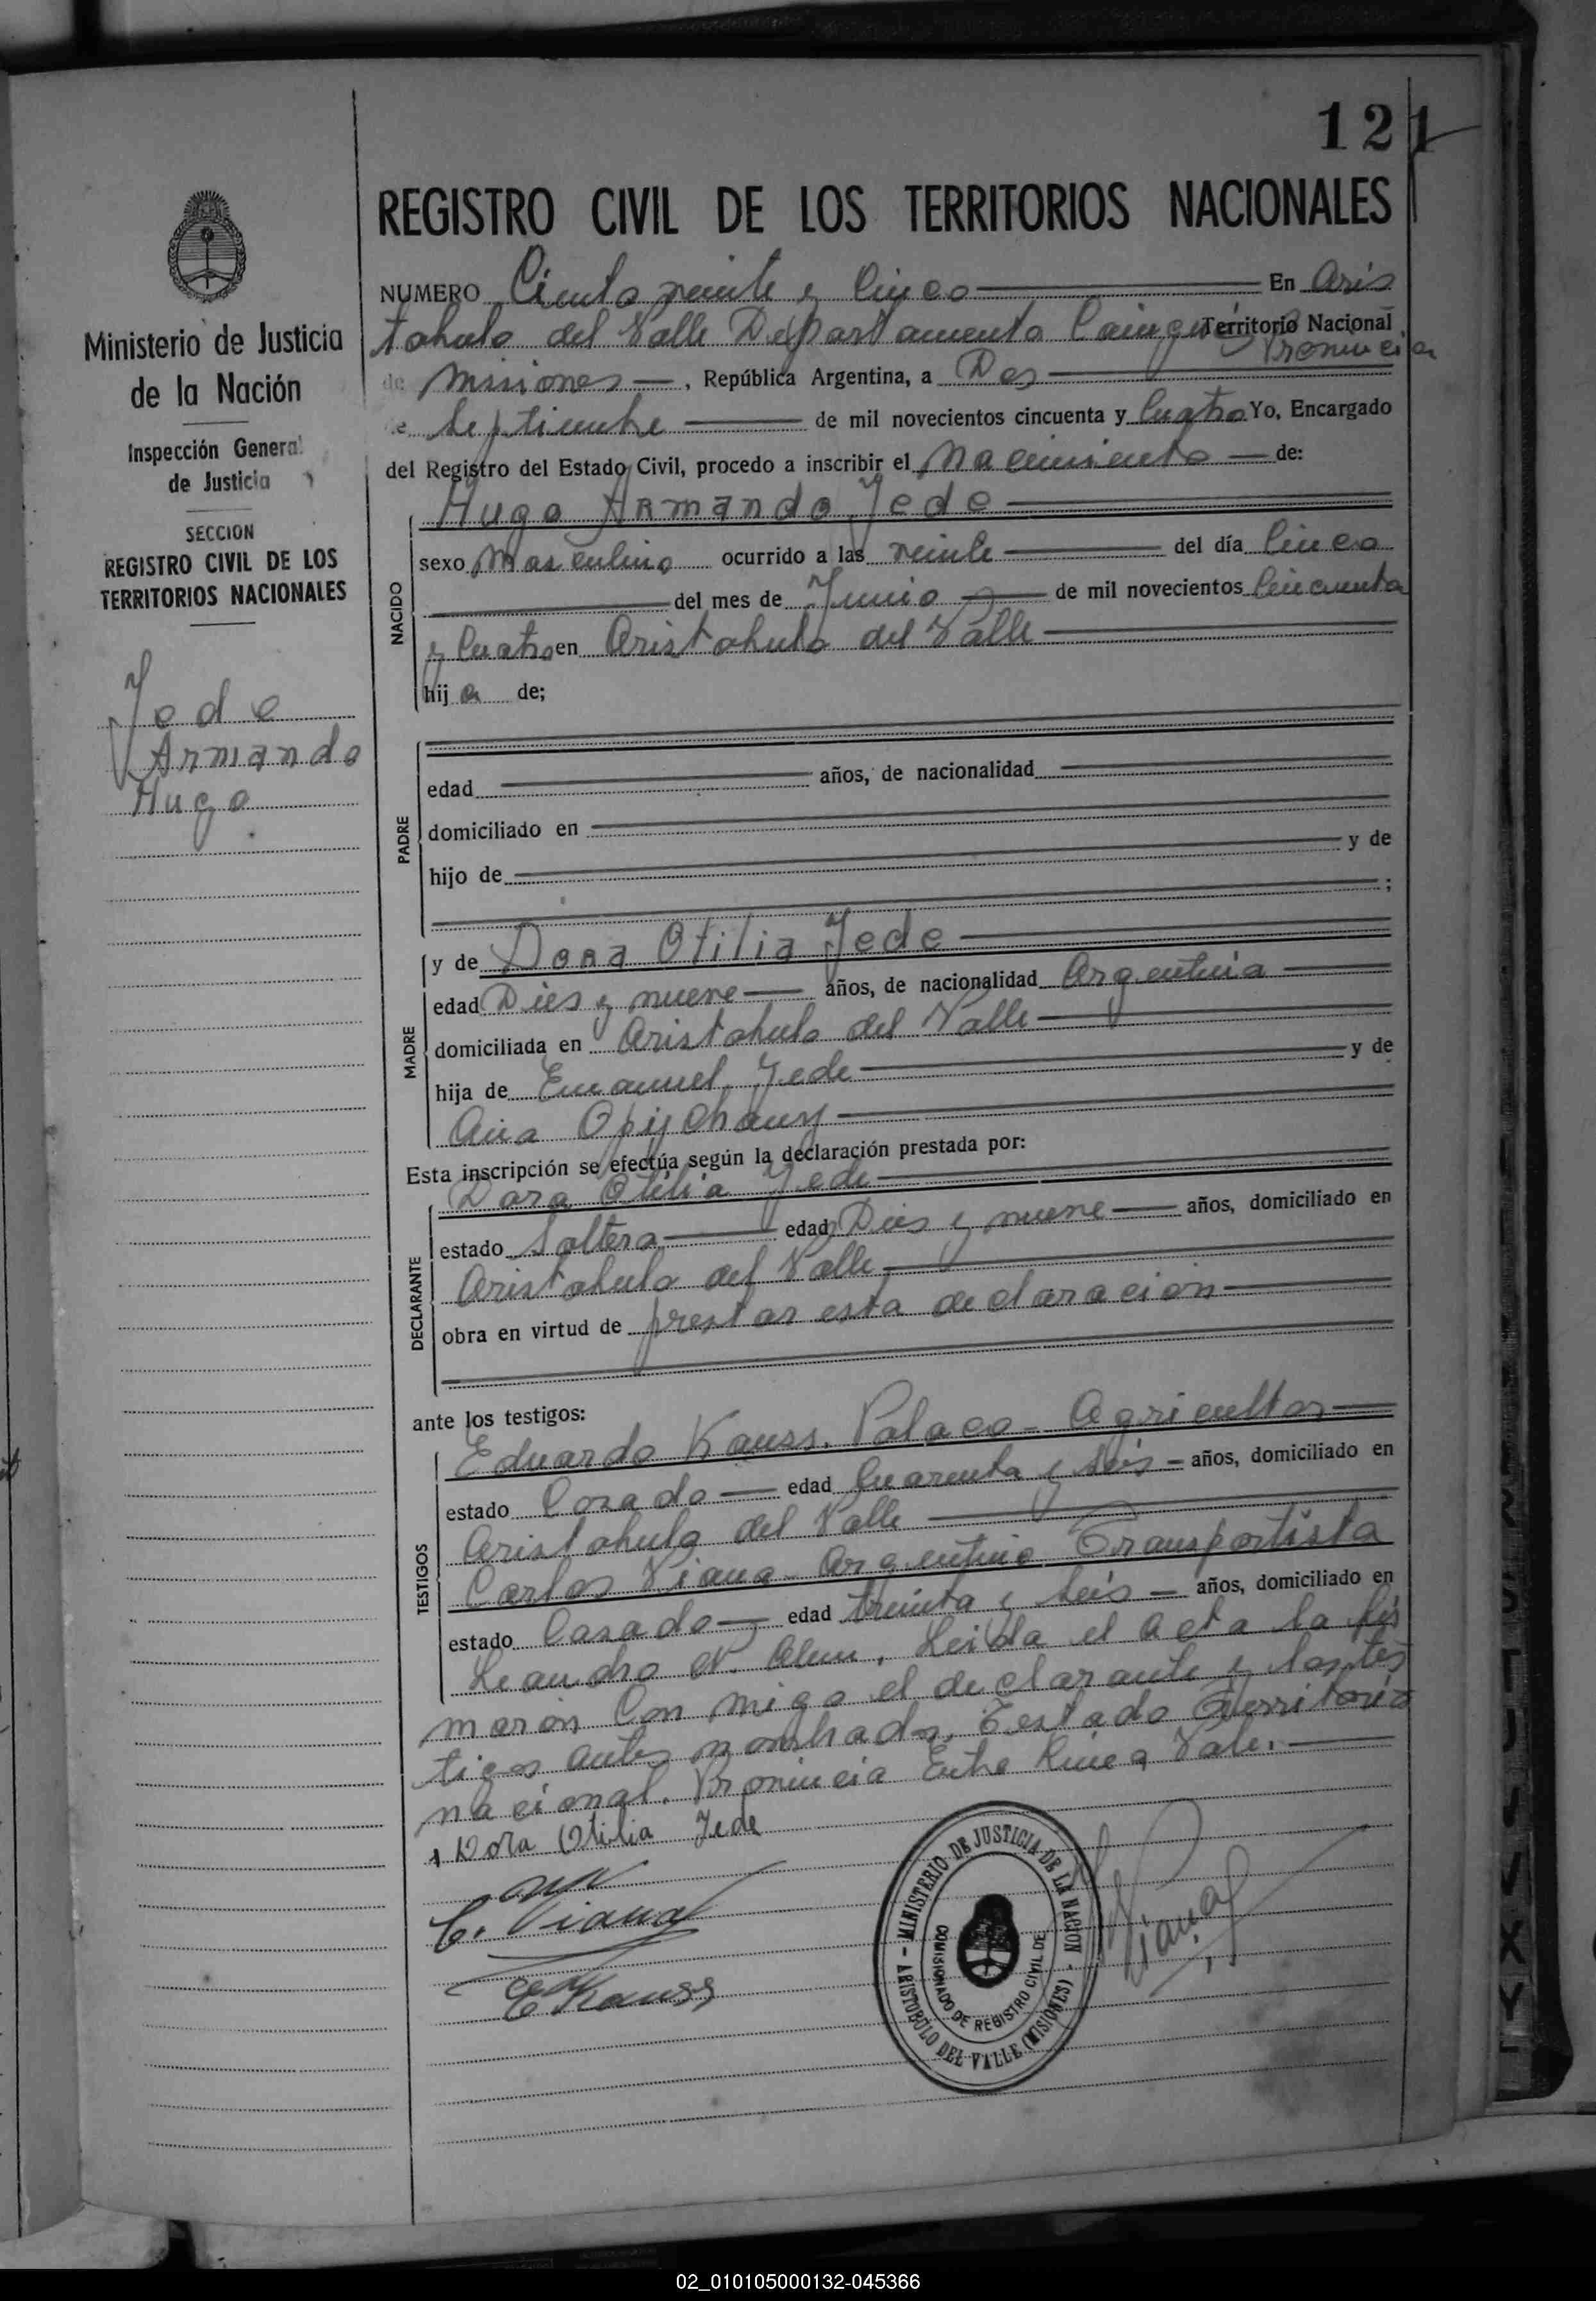 121
REGISTRO CIVIL DE LOS TERRITORIOS NACIONALES
Ministerio de Justicia
de la Nación
Inspección General
de Justicia
SECCION
REGISTRO CIVIL DE LOS
TERRITORIOS NACIONALES
Jede
Armando
Hugo
NUMERO Ciento veinte y Cinco En Aris
tobulo del Valle Departamento Cainguás Territorio Nacional
Provincia
de Misiones, República Argentina, a Dos
de Septiembre de mil novecientos cincuenta y Cuatro Yo, Encargado
del Registro del Estado Civil, procedo a inscribir el Nacimiento de:
NACIDO
Hugo Armando Jede
sexo Masculino ocurrido a las veinte del día Cinco
del mes de Junio de mil novecientos Cincuenta
y Cuatro en Aristobulo del Valle
hij o de;
PADRE
edad años, de nacionalidad
domiciliado en
hijo de y de
;
MADRE
y de Dora Otilia Jede
edad Dies y nueve años, de nacionalidad Argentina
domiciliada en Aristobulo del Valle
hija de Emanuel Jede y de
Ana
Esta inscripción se efectúa según la declaración prestada por:
DECLARANTE
Dora Otilia Jede
estado Soltera edad Dies y nueve años, domiciliado en
Aristobulo del Valle
obra en virtud de prestar esta declaracion
ante los testigos:
TESTIGOS
Eduardo Kauss. Polaco - Agricultor
estado Casado edad Cuarenta y seis - años, domiciliado en
Aristobulo del Valle
Carlos Viana - Argentino Transportista
estado Casado edad treinta y seis - años, domiciliado en
Leandro N. Alem. Leida el acta la fir
maron Con migo el declarante y los tes
tigos antes nombrados. Testado Territorio
nacional. Provincia Entre linea Vale.
Dora Otilia Jede
C. Viana
E Kauss
MINISTERIO DE JUSTICIA DE LA NACION
ARISTOBULO DEL VALLE (MISIONES)
COMISIONADO DE REGISTRO CIVIL DE
02_010105000132-045366